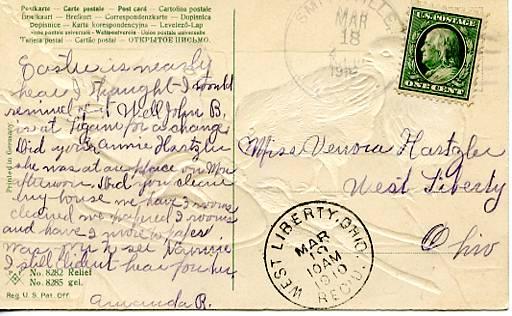 Postkarte — Carte postale — Post card — Cartolina postale
Briefkaart — Brefkort — Correspondenzkarte — Dopisnica
Dopisnice — Karta korespondencyjna — Levelező-Lap
Union postale universelle — Weltpostverein — Unione postale universale
Tarjeta postal — Cartão postal — ОТКРЫТОЕ ПИСЬМО.
MAR
18
1910
U.S. POSTAGE
ONE CENT
Easter is nearly
hear I thought I would
remind of it Well John B.
is at for a change
Did you Fannie Hartzler
she was at our place on Mon
afternoon. Did you clean
any house we have 3 rooms
cleaned we papered 2 rooms
and have 2 more to paper
was over to see Nannie
I still didn't hear from her
Amanda R.
Miss Verona Hartzler
West Liberty
Ohio
WEST LIBERTY, OHIO.
MAR
19
10AM
1910
REC'D.
Printed in Germany
No. 8282 Relief
No. 8285 gel.
Reg. U. S. Pat. Off.